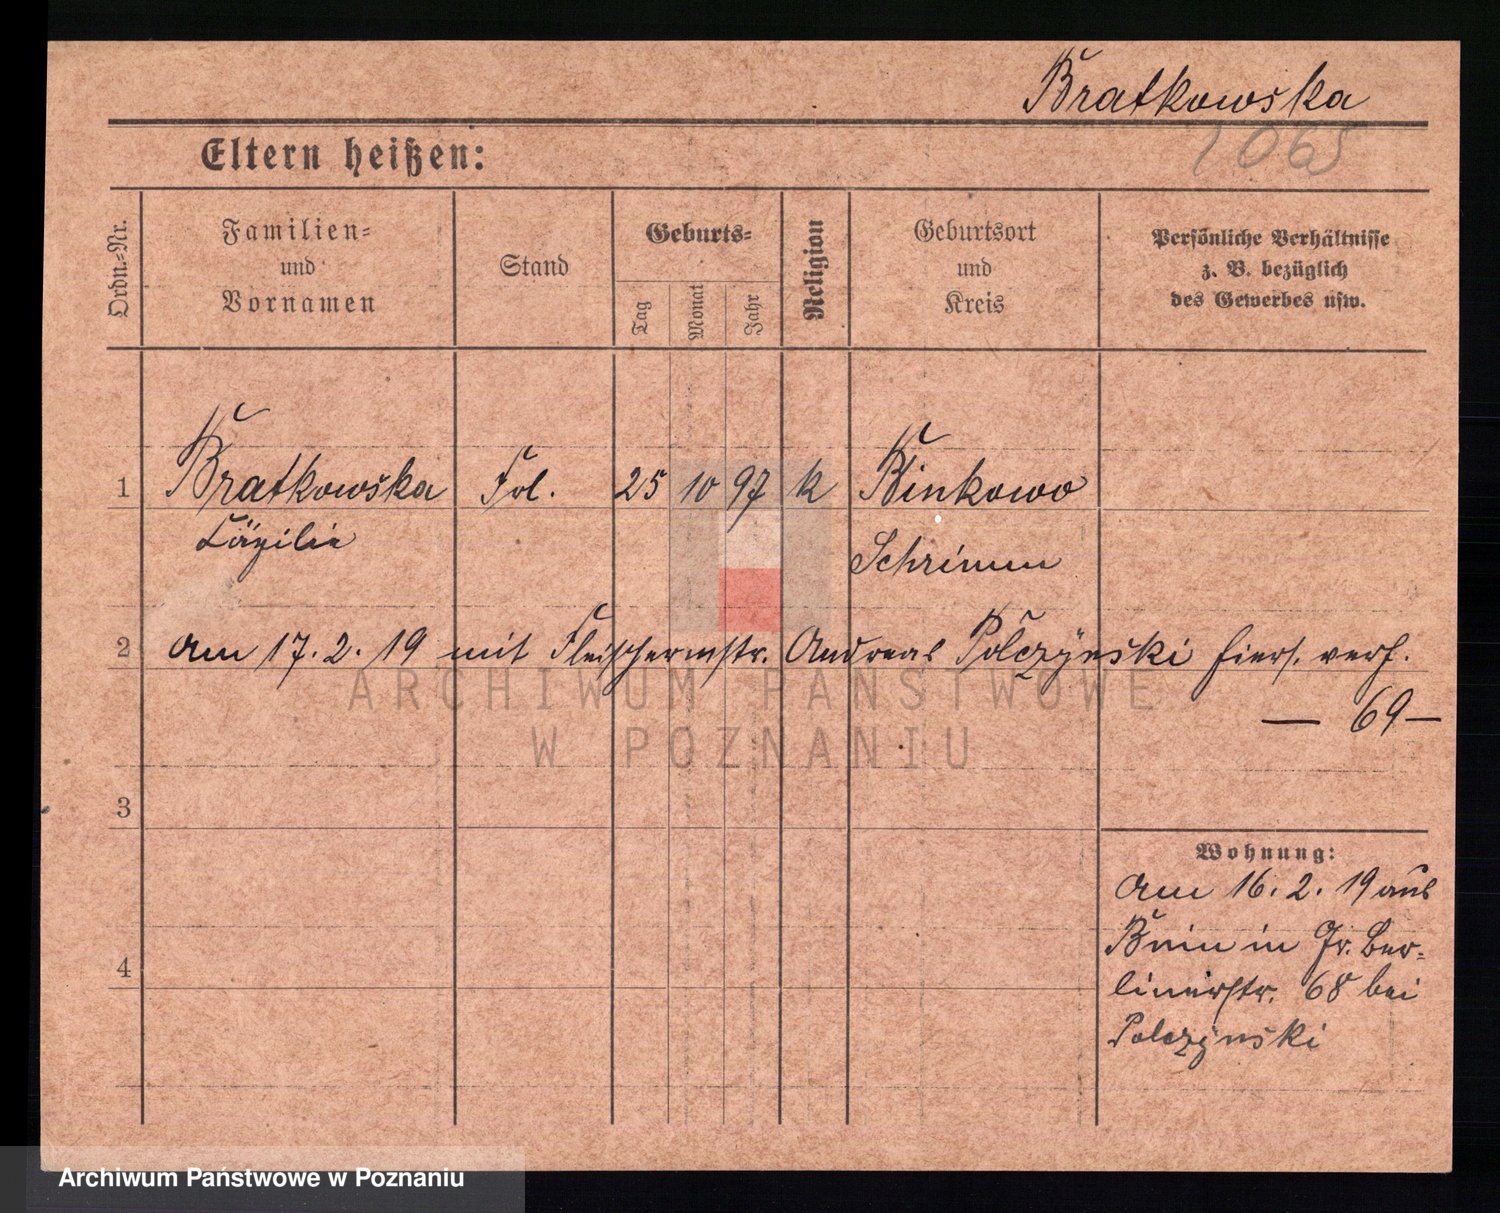 Bratkowska
1065
Eltern heißen:
Ordn.-Nr.
Familien-
und
Vornamen
Stand
Geburts-
Tag
Monat
Jahr
Religion
Geburtsort
und
Kreis
Persönliche Verhältnisse
z. B. bezüglich
des Gewerbes usw.
1 Bratkowska Frl. 25 10 97 k Binkowo
Cäzilie
Schrimm
2 am 17. 2. 19 mit Fleischermstr. Andreas Polczynski hiers. verh.
— 69 —
ARCHIWUM PAŃSTWOWE
W POZNANIU
3
Wohnung:
am 16. 2. 19 aus
Bnin in Gr. Ber-
linerstr. 68 bei
Polczynski
4
Archiwum Państwowe w Poznaniu